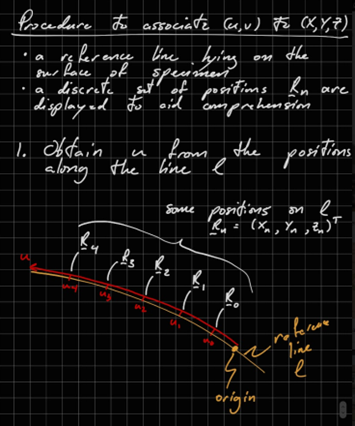 Procedure to associate (u,v) to (X,Y,Z)
• a reference line lying on the
surface of specimen
• a discrete set of positions R_n are
displayed to aid comprehension
1. Obtain u from the positions
along the line l
some positions on l
R_n = (X_n, Y_n, Z_n)^T
R_4
R_3
R_2
R_1
R_0
u
u_4
u_3
u_2
u_1
u_0
reference
line
l
origin